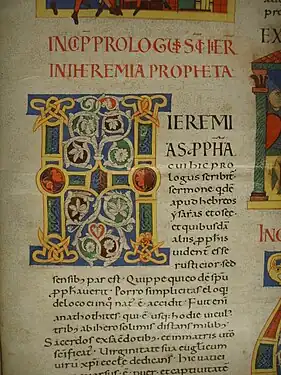 INCIP PROLOGUS SCI IER
IN IHEREMIA PROPHETA
H
IEREMI
AS PPHA
cui hic pro
logus scribit
sermone qde
apud hebreos
ysaias et osee
et quibusda
aliis pphis
videnť esse
rusticior sed
sensib; par est. Quippe qui eode spu
pphaverit. Porro simplicitas eloqi
de loco ei in q nat e accidit. Fuit eni
anathothites qui e usq; hodie vicul'
trib; ab iherosolimis distans milib;
Sacerdos ex sacerdotib; et in matris uto
scificat'. Virginitate sua euglicum
viru xpi eccle dedicans. Hic vatici
et captivitate
EX
IN